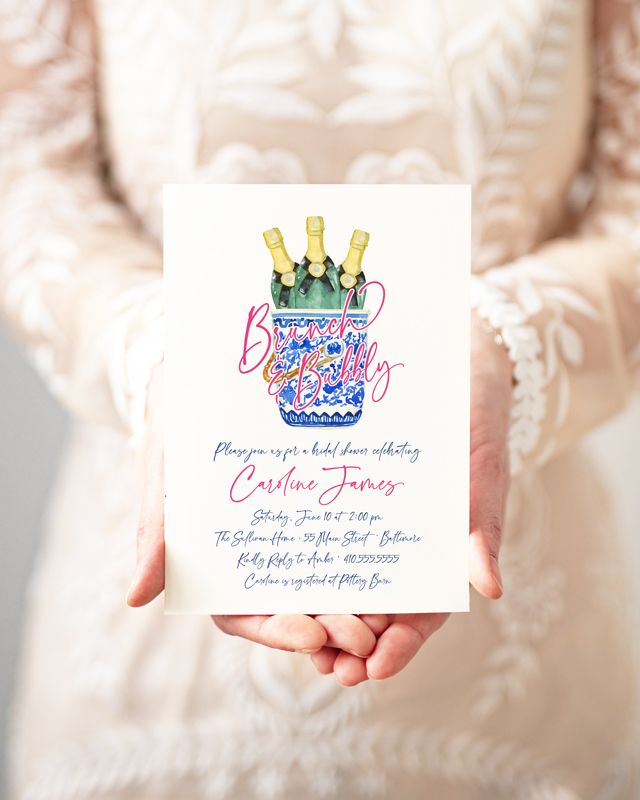 Brunch
& Bubbly
Please join us for a bridal shower celebrating
Caroline James
Saturday, June 10 at 2:00 pm
The Sullivan Home • 55 Main Street • Baltimore
Kindly Reply to Amber • 410.555.5555
Caroline is registered at Pottery Barn